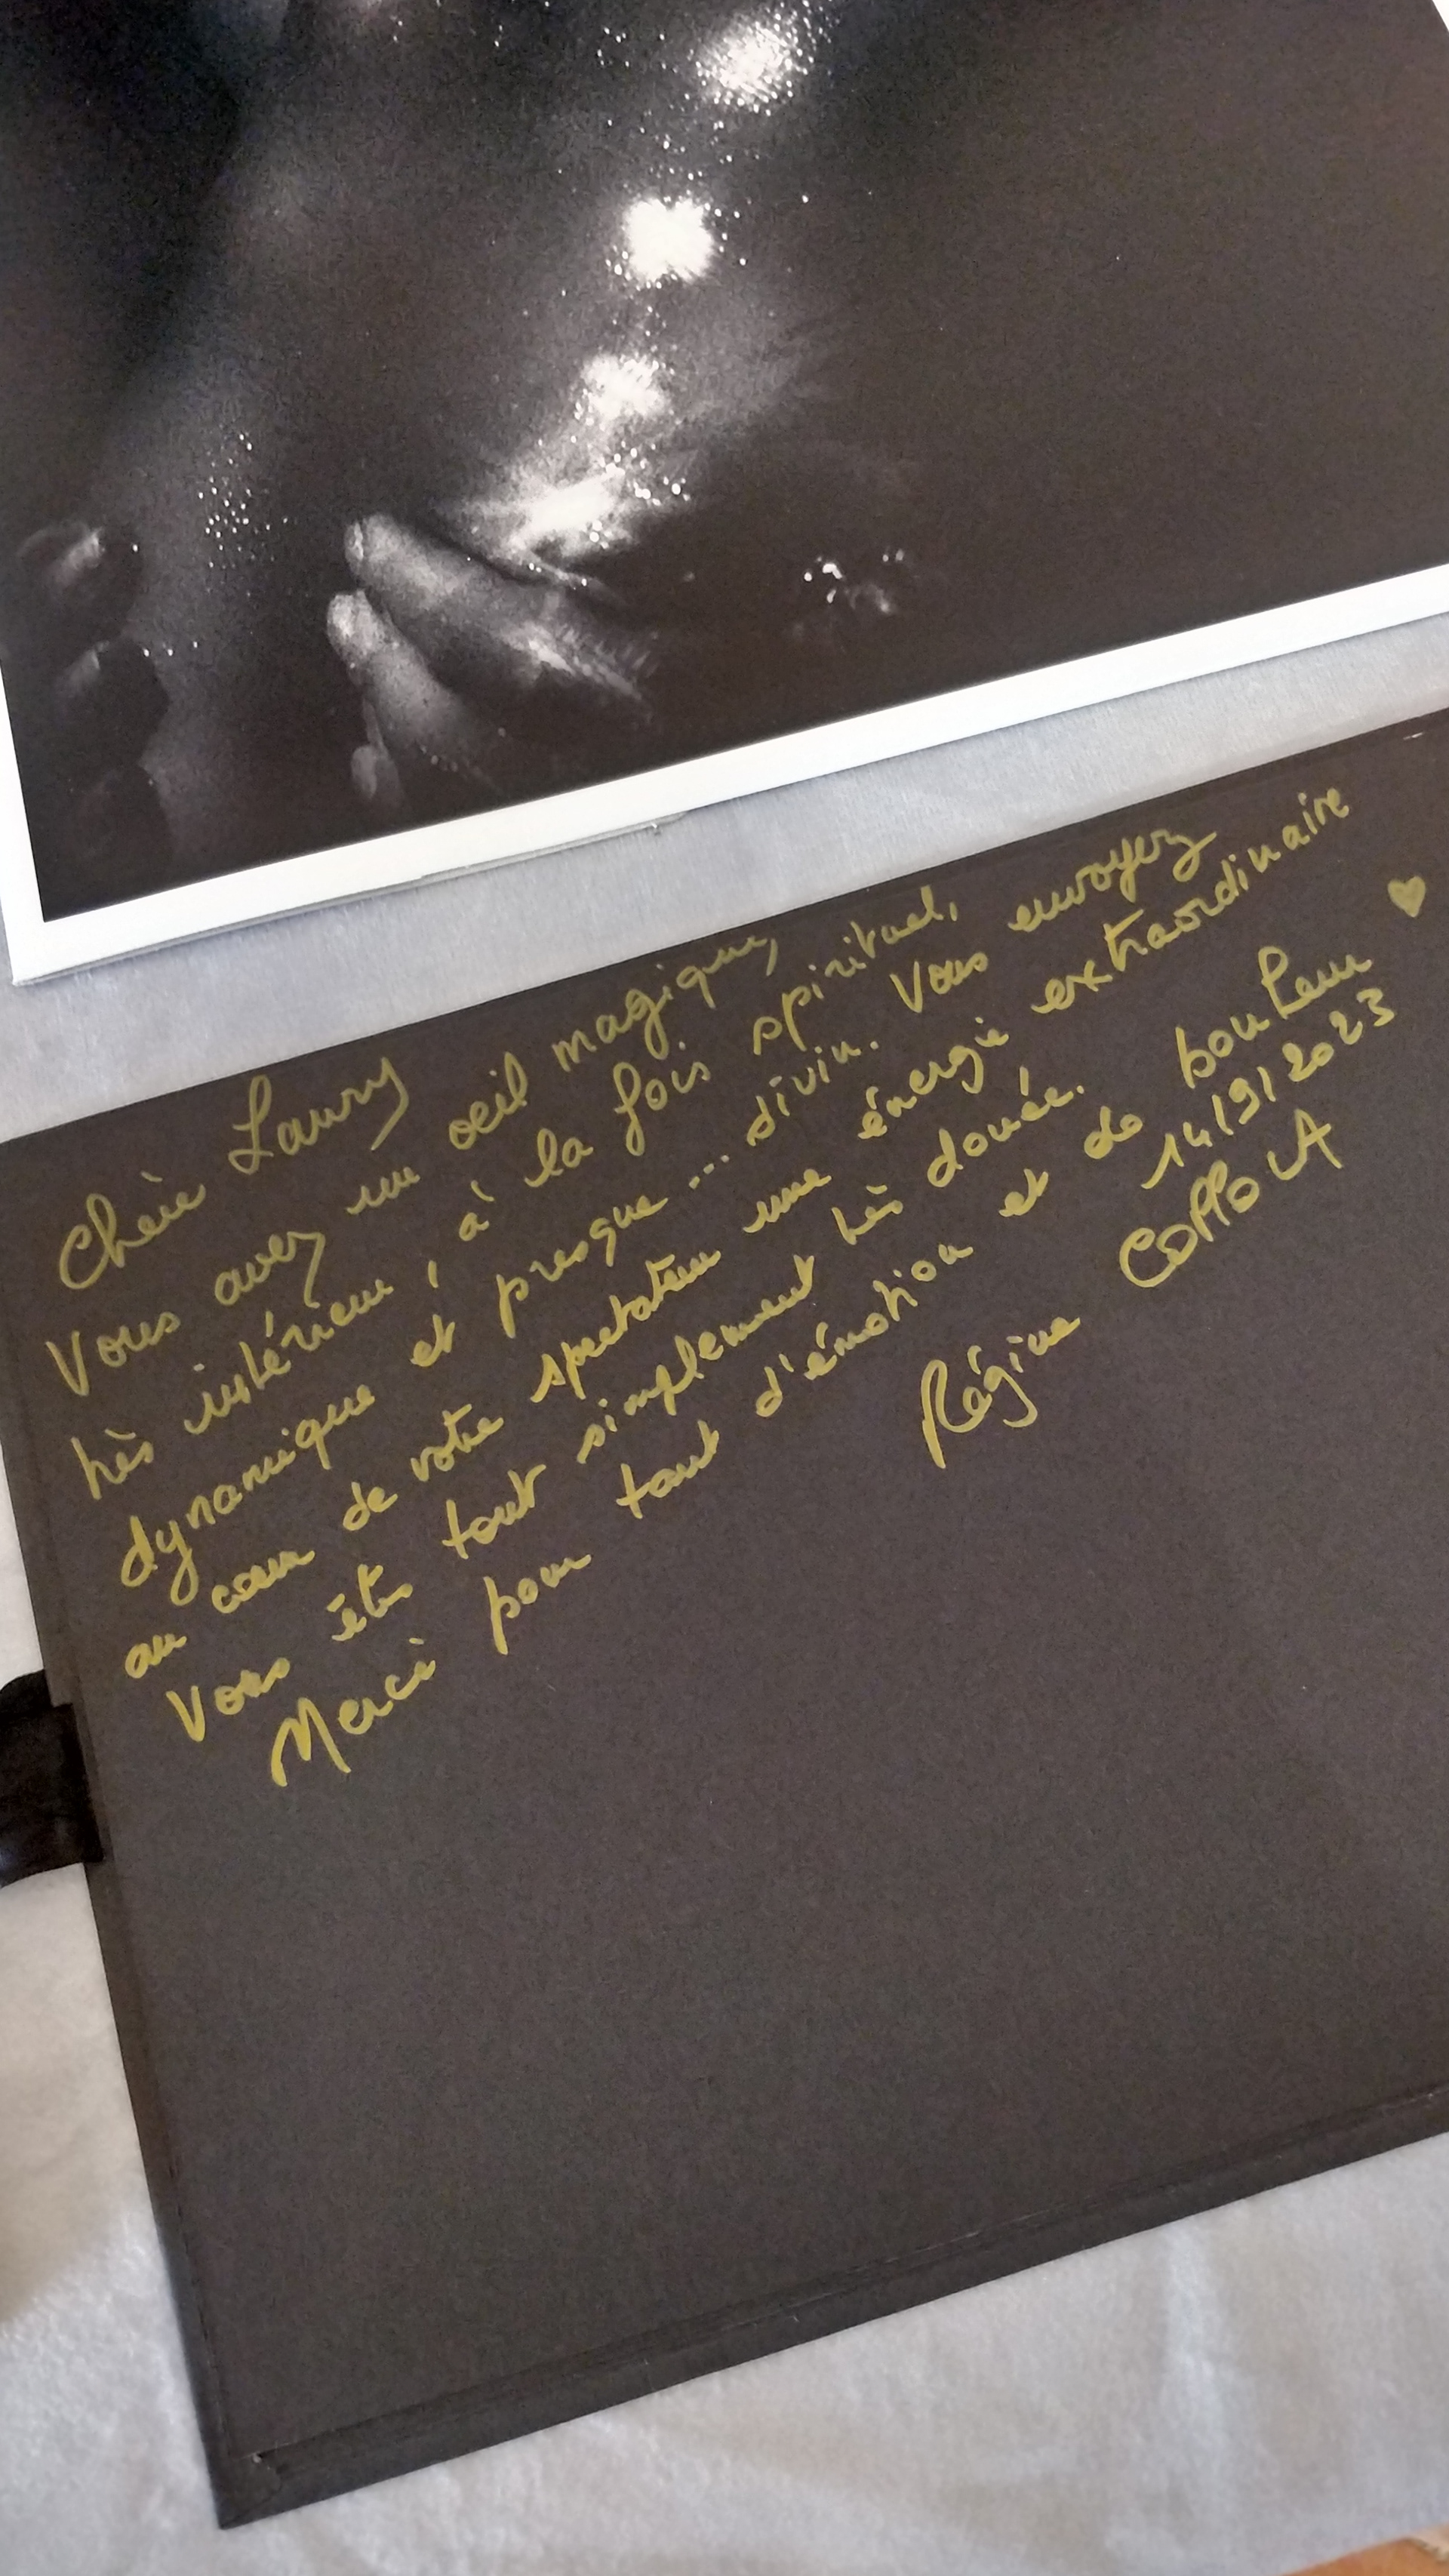 Chère Laury
Vous avez un oeil magique,
très intérieur, à la fois spirituel,
dynamique et presque... divin. Vous envoyez
au coeur de votre spectateur une énergie extraordinaire
Vous êtes tout simplement très douée.
Merci pour tant d'émotion et de bonheur ♥
14/9/2023
Régine COPPOLA